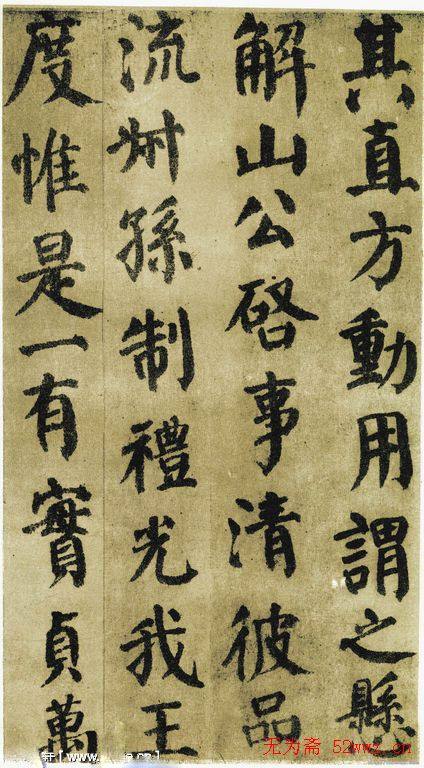 其直方動用謂之懸
解山公啓事清彼品
流叔孫制禮光我王
度惟是一有實貞萬
无为斋 52wwz.cn